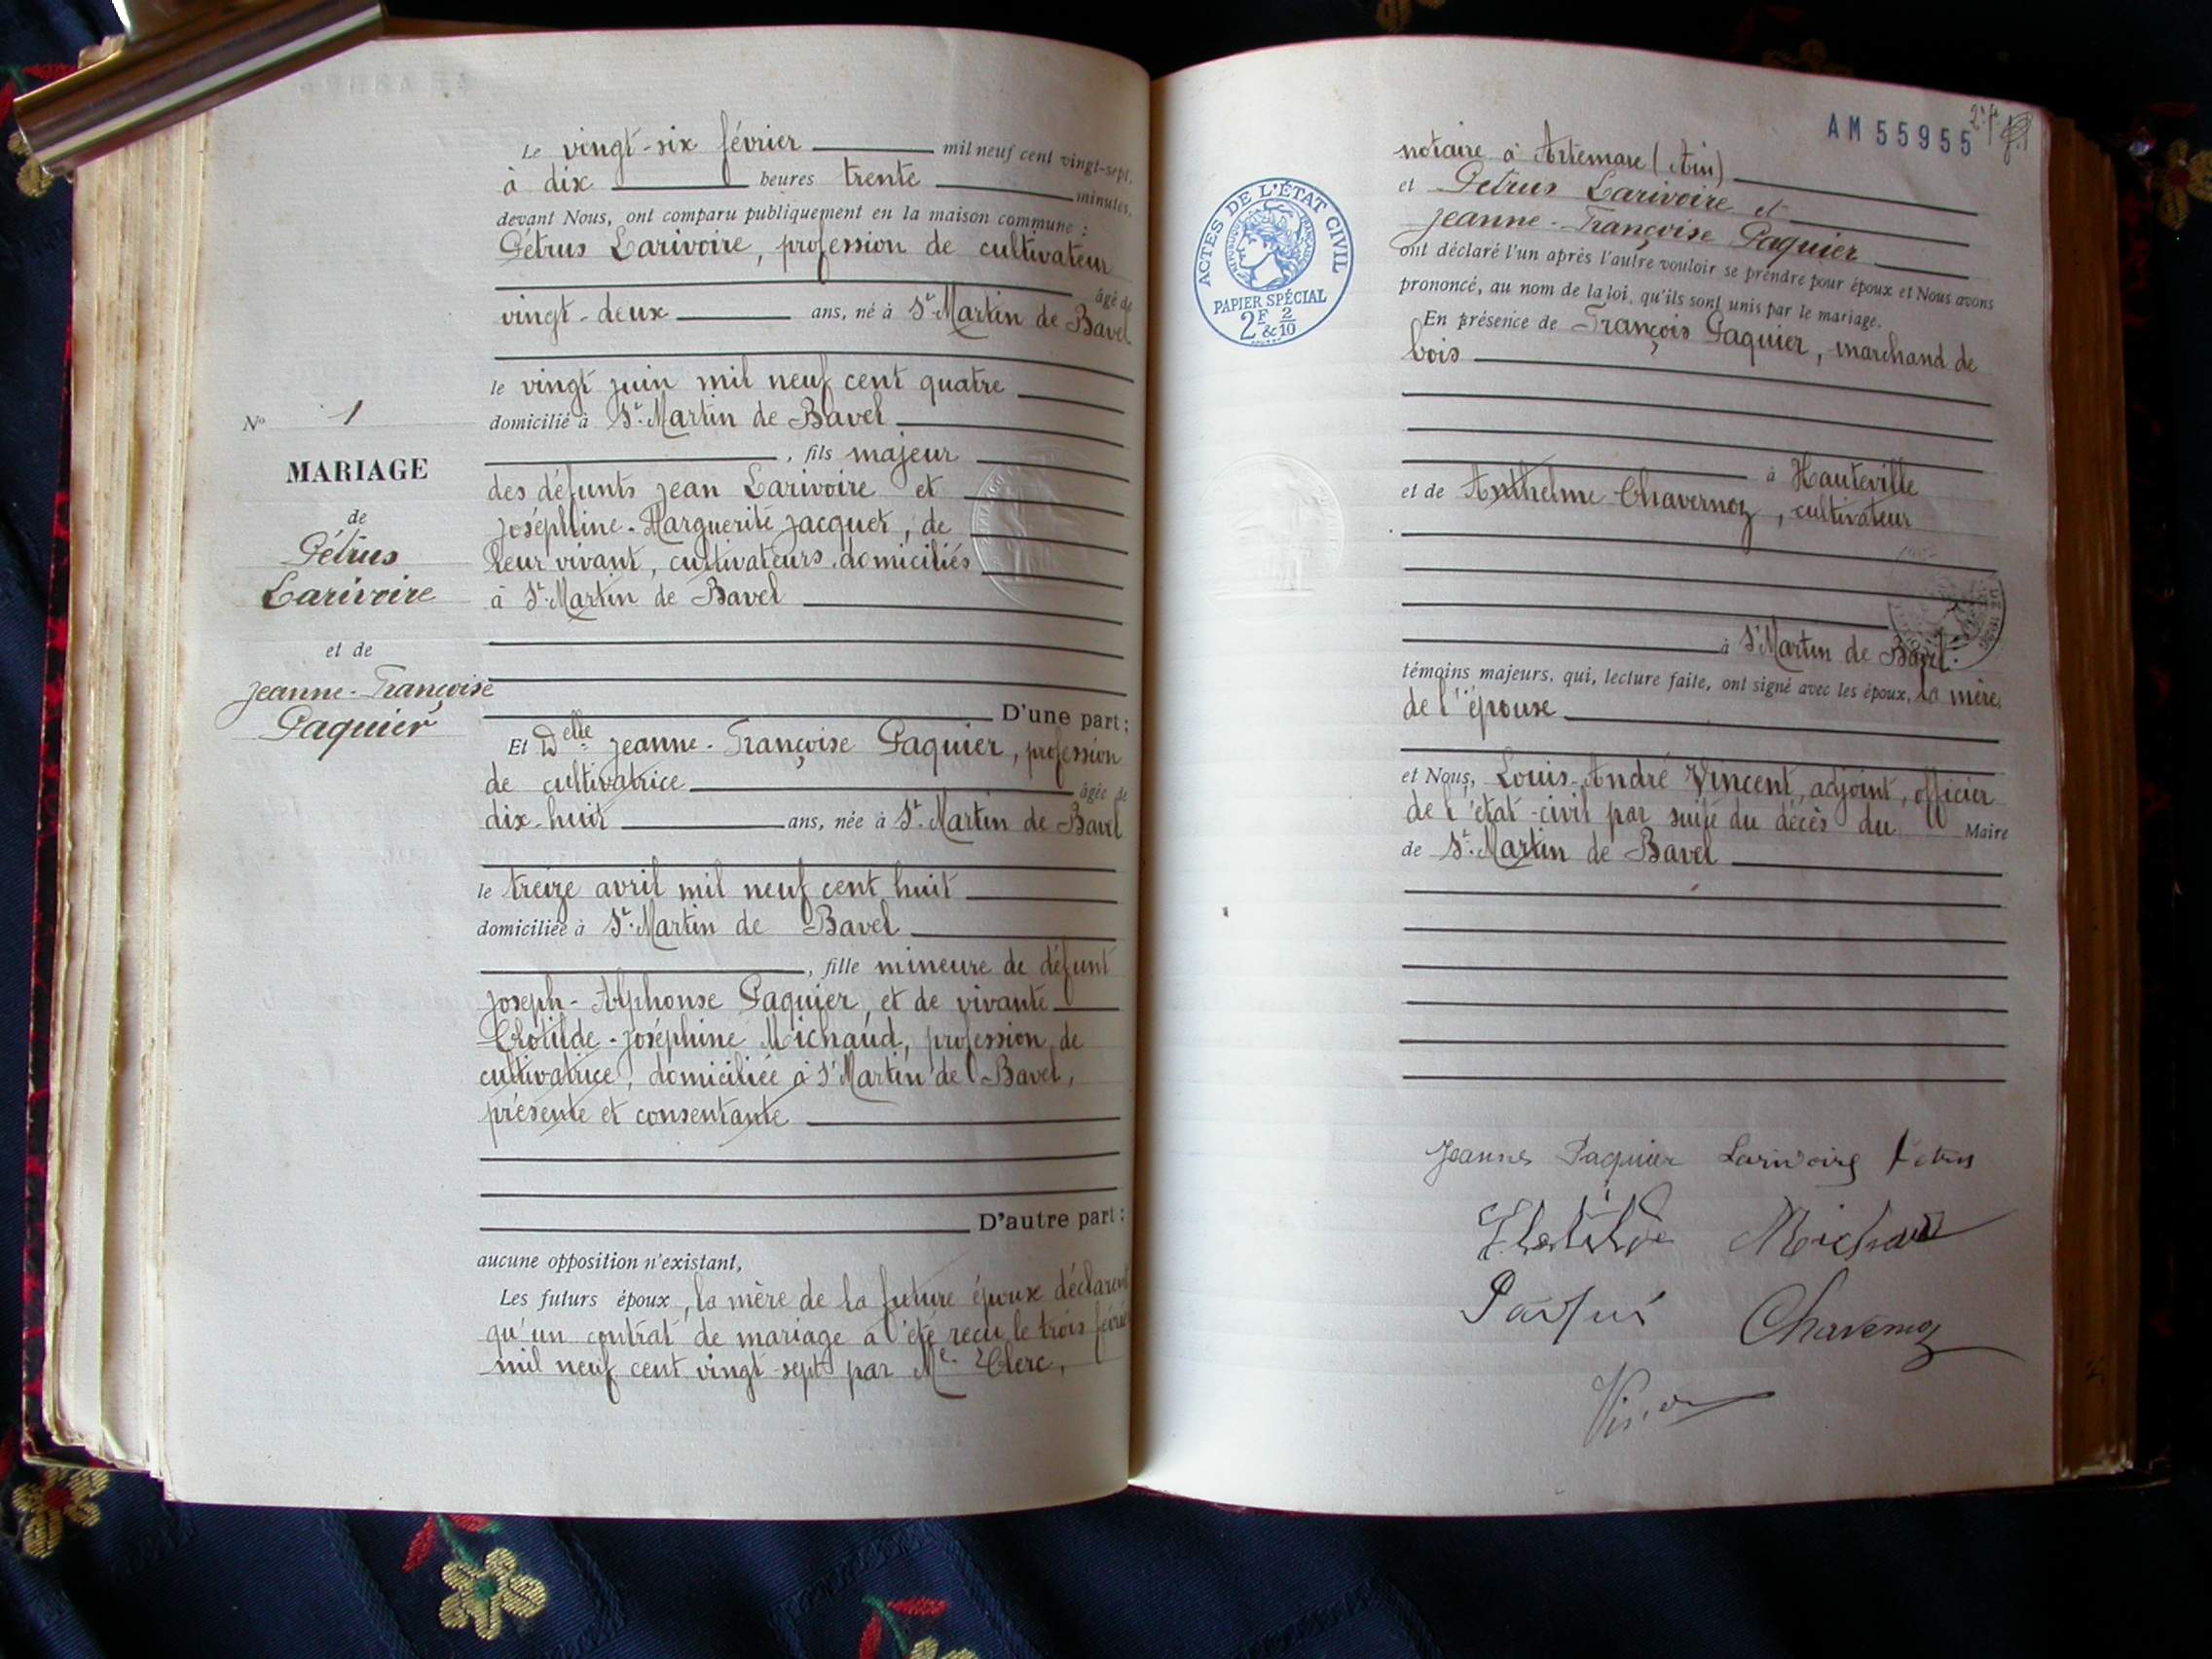 Le vingt-six février mil neuf cent vingt-sept,
à dix heures trente minutes,
devant Nous, ont comparu publiquement en la maison commune :
Pétrus Larivoire, profession de cultivateur
âgé de
vingt-deux ans, né à St Martin de Bavel
le vingt juin mil neuf cent quatre
domicilié à St. Martin de Bavel
, fils majeur
des défunts Jean Larivoire et
Joséphine-Marguerite Jacquet, de
leur vivant, cultivateurs domiciliés
à St. Martin de Bavel
D'une part ;
Et Delle Jeanne-Françoise Paquier, profession
de cultivatrice âgée de
dix-huit ans, née à St. Martin de Bavel
le treize avril mil neuf cent huit
domiciliée à St. Martin de Bavel
, fille mineure de défunt
Joseph-Alphonse Paquier, et de vivante
Clotilde-Joséphine Michaud, profession de
cultivatrice, domiciliée à St Martin de Bavel,
présente et consentante
D'autre part ;
aucune opposition n'existant,
Les futurs époux, la mère de la future époux déclarent
qu'un contrat de mariage a été reçu le trois février
mil neuf cent vingt-sept par Me. Clerc,
No 1
MARIAGE
de
Pétrus
Larivoire
et de
Jeanne-Françoise
Paquier
AM 55955
ACTES DE L'ÉTAT CIVIL
RÉPUBLIQUE FRANÇAISE
PAPIER SPÉCIAL
2F & 2/10
notaire à Artemare (Ain)
et Pétrus Larivoire et
Jeanne-Françoise Paquier
ont déclaré l'un après l'autre vouloir se prendre pour époux et Nous avons
prononcé, au nom de la loi, qu'ils sont unis par le mariage.
En présence de François Paquier, marchand de
bois
à Hauteville
et de Anthelme Chavernoz, cultivateur
à St Martin de Bavel.
témoins majeurs, qui, lecture faite, ont signé avec les époux, la mère
de l'épouse
et Nous, Louis-André Vincent, adjoint, officier
de l'état-civil par suite du décès du Maire
de St. Martin de Bavel
Jeanne Paquier Larivoire Pétrus
Clotilde Michaud
Chavernoz